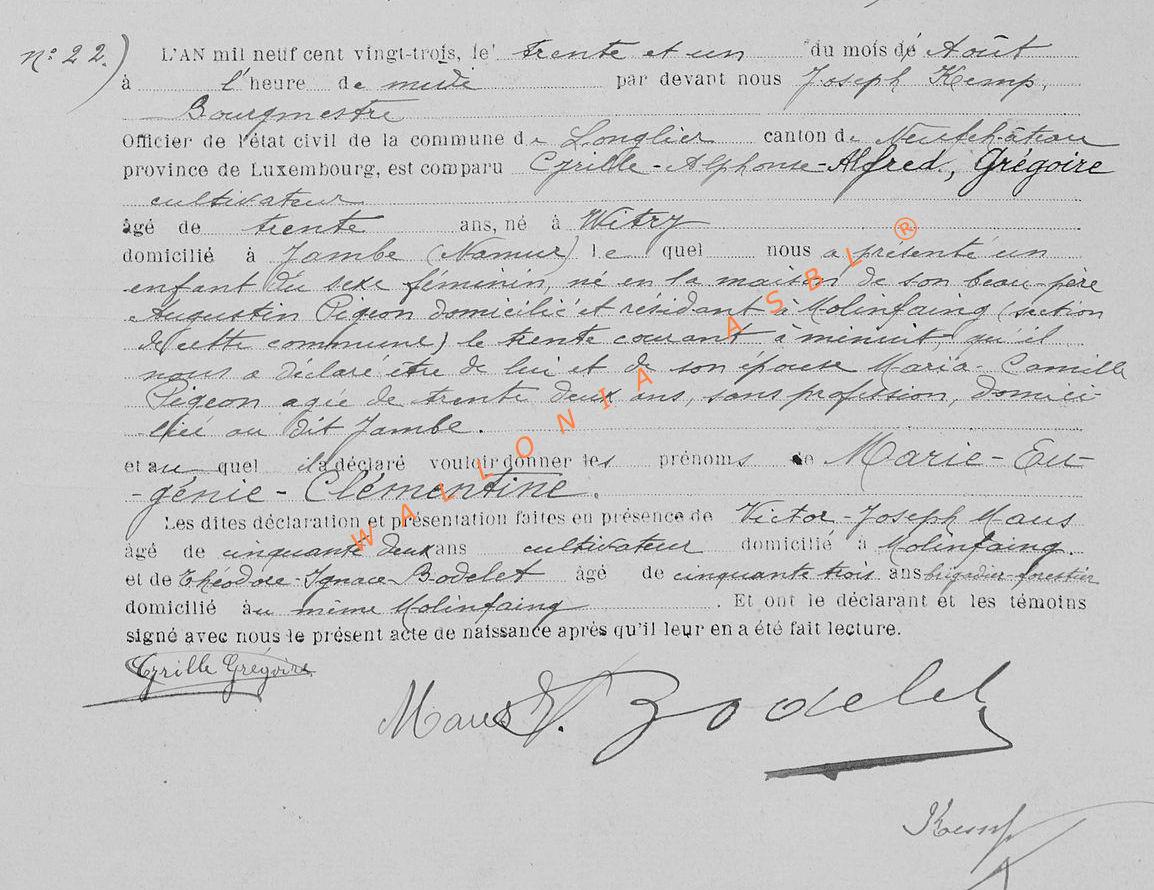 n° 22.) L'AN mil neuf cent vingt-trois, le trente et un du mois de Août
à l'heure de midi par devant nous Joseph Kemp,
Bourgmestre
Officier de l'état civil de la commune de Longlier canton de Neufchâteau
province de Luxembourg, est comparu Cyrille-Alphonse-Alfred, Grégoire
cultivateur
âgé de trente ans, né à Witry
domicilié à Jambe (Namur) le quel nous a présenté un
enfant du sexe féminin, né en la maison de son beau-père
Augustin Pigeon domicilié et résidant à Molinfaing (section
de cette commune) le trente courant à minuit, qu'il
nous a déclaré être de lui et de son épouse Maria-Camille
Pigeon agée de trente deux ans, sans profession, domici-
liée au dit Jambe.
et au quel il a déclaré vouloir donner les prénoms de Marie-Eu-
-génie-Clémentine.
Les dites déclaration et présentation faites en présence de Victor-Joseph Maus
âgé de cinquante deux ans cultivateur domicilié à Molinfaing.
et de Théodore-Ignace-Bodelet âgé de cinquante trois ans brigadier-forestier
domicilié au même Molinfaing. Et ont le déclarant et les témoins
signé avec nous le présent acte de naissance après qu'il leur en a été fait lecture.
Cyrille Grégoire
Maus V. Bodelet
Kemp
WALLONIA ASBL ®